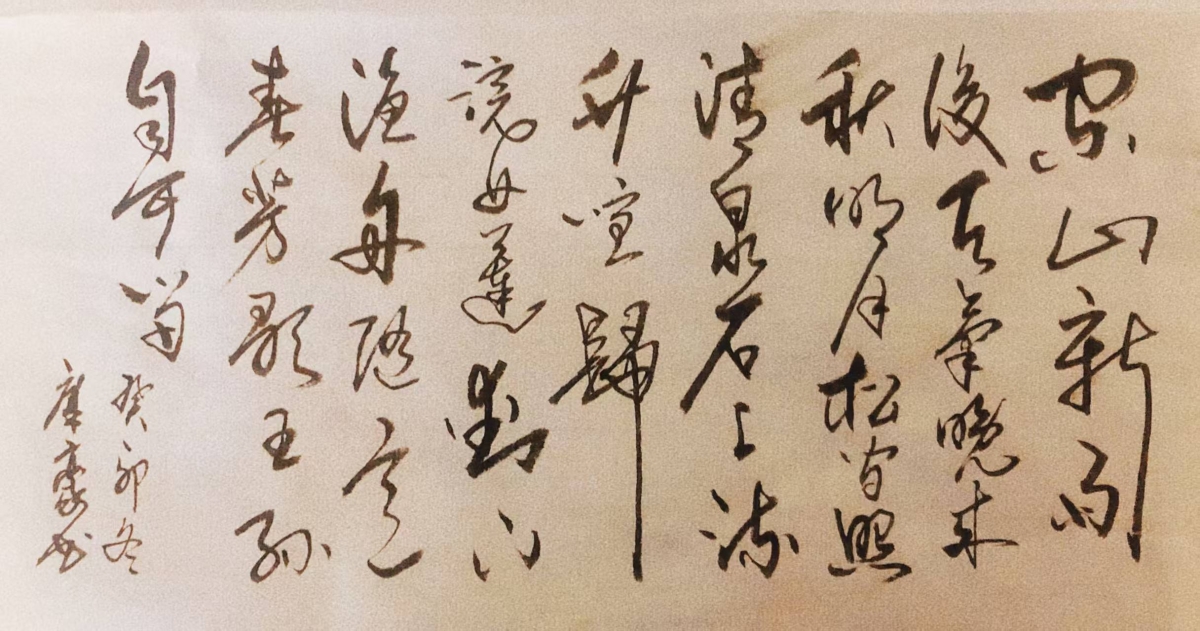 空山新雨
後天氣晚来
秋明月松间照
清泉石上流
竹喧歸
浣女蓮動下
漁舟隨意
春芳歇王孫
自可留
癸卯冬
唐豪书